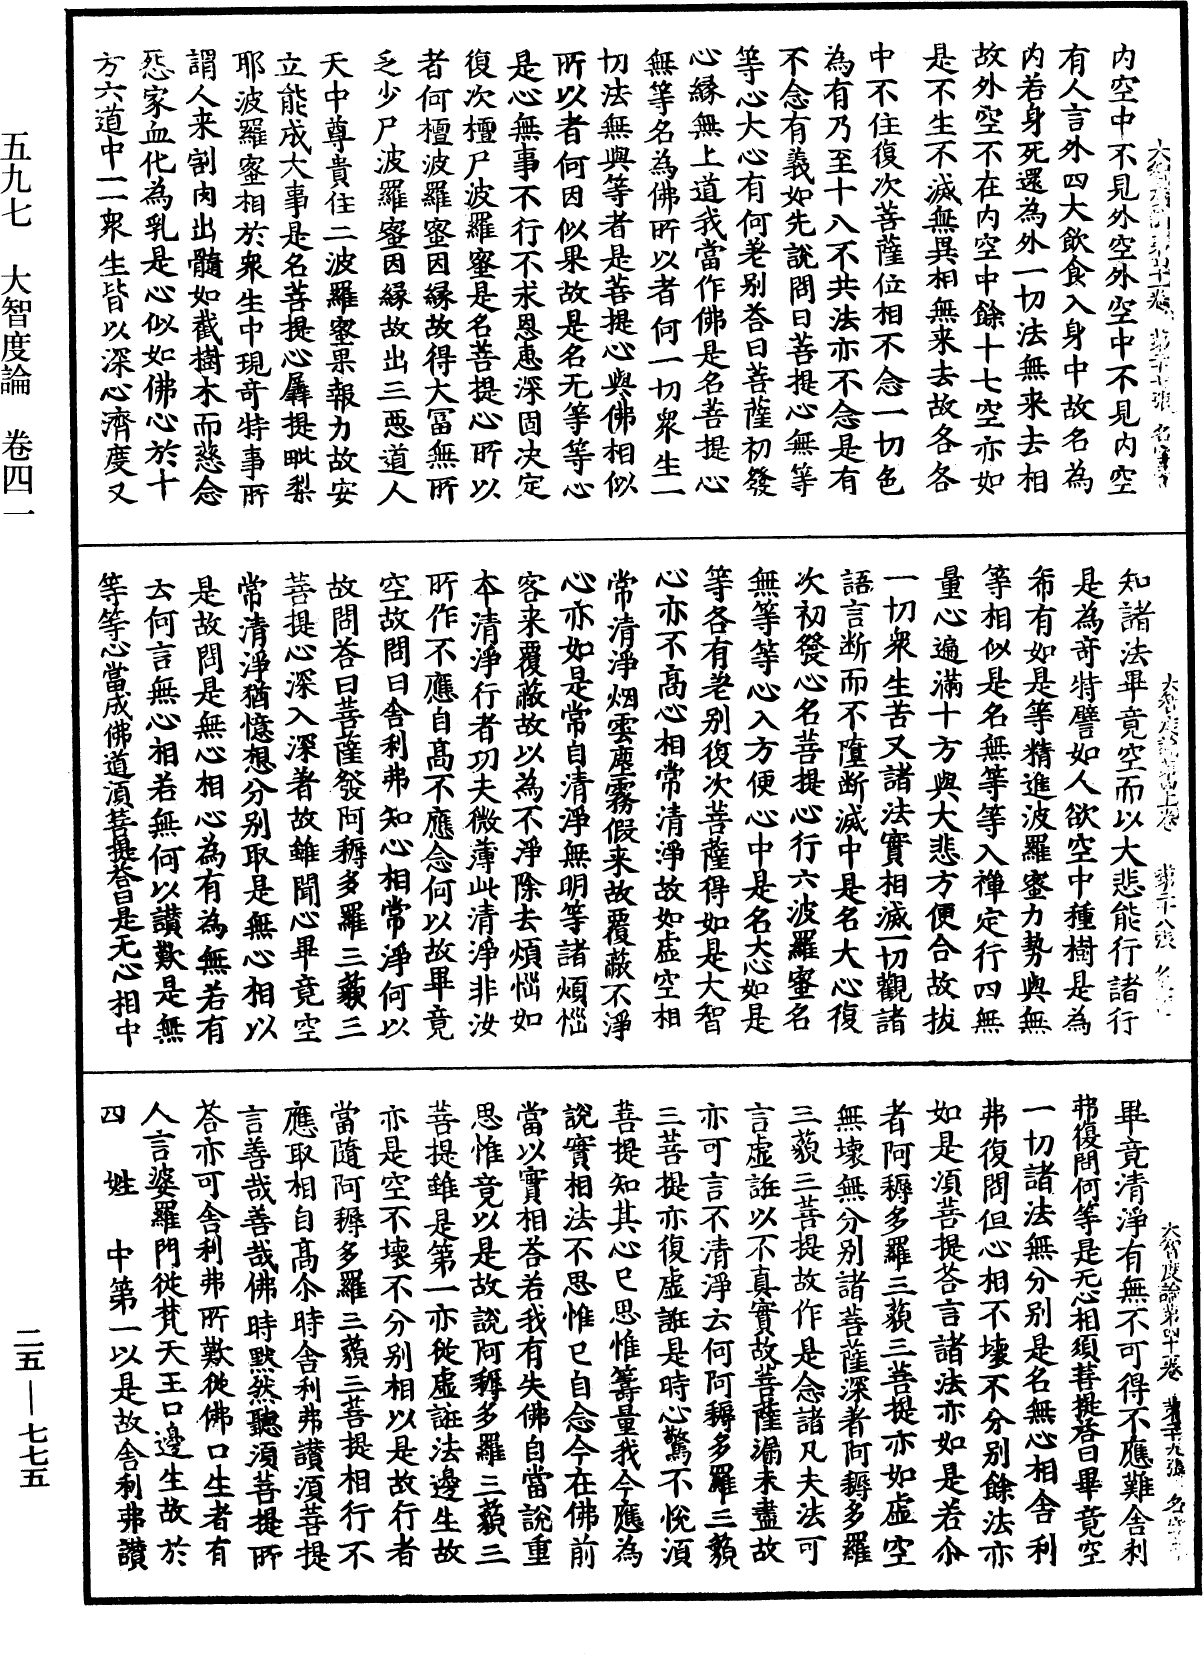 内空中不見外空外空中不見内空
有人言外四大飲食入身中故名為
内若身死還為外一切法無来去相
故外空不在内空中餘十七空亦如
是不生不滅無異相無来去故各各
中不住復次菩薩位相不念一切色
為有乃至十八不共法亦不念是有
不念有義如先說問曰菩提心無等
等心大心有何差别荅曰菩薩初發
心縁無上道我當作佛是名菩提心
無等名為佛所以者何一切衆生一
切法無與等者是菩提心與佛相似
所以者何因似果故是名无等等心
是心無事不行不求恩惠深固决定
復次檀尸波羅蜜是名菩提心所以
者何檀波羅蜜因縁故得大冨無所
乏少尸波羅蜜因縁故出三惡道人
天中尊貴住二波羅蜜果報力故安
立能成大事是名菩提心羼提毗梨
耶波羅蜜相於衆生中現竒特事所
謂人来割肉出髓如截樹木而慈念
怨家血化為乳是心似如佛心於十
方六道中一一衆生皆以深心濟度又
知諸法畢竟空而以大悲能行諸行
是為竒特譬如人欲空中種樹是為
希有如是等精進波羅蜜力勢與無
等相似是名無等等入禪定行四無
量心遍滿十方與大悲方便合故拔
一切衆生苦又諸法實相滅一切觀諸
語言断而不墮断滅中是名大心復
次初發心名菩提心行六波羅蜜名
無等等心入方便心中是名大心如是
等各有差别復次菩薩得如是大智
心亦不髙心相常清淨故如虚空相
常清淨烟雲塵霧假来故覆蔽不淨
心亦如是常自清淨無明等諸煩惱
客来覆蔽故以為不淨除去煩惱如
本清淨行者功夫微薄此清淨非汝
所作不應自髙不應念何以故畢竟
空故問曰舍利弗知心相常淨何以
故問荅曰菩薩發阿耨多羅三藐三
菩提心深入深著故雖聞心畢竟空
常清淨猶憶想分别取是無心相以
是故問是無心相心為有為無若有
云何言無心相若無何以讃歎是無
等等心當成佛道湏菩提荅曰是无心相中
畢竟清淨有無不可得不應難舍利
弗復問何等是无心相須菩提荅曰畢竟空
一切諸法無分别是名無心相舍利
弗復問但心相不壊不分别餘法亦
如是須菩提荅言諸法亦如是若尒
者阿耨多羅三藐三菩提亦如虚空
無壊無分别諸菩薩深著阿耨多羅
三藐三菩提故作是念諸凡夫法可
言虚誑以不真實故菩薩漏未盡故
亦可言不清淨云何阿耨多羅三藐
三菩提亦復虚誑是時心驚不恱湏
菩提知其心已思惟籌量我今應為
說實相法不思惟已自念今在佛前
當以實相荅若我有失佛自當說重
思惟竟以是故說阿耨多羅三藐三
菩提雖是第一亦從虚誑法邊生故
亦是空不壊不分别相以是故行者
當隨阿耨多羅三藐三菩提相行不
應取相自髙尒時舍利弗讃湏菩提
言善哉善哉佛時默然聽須菩提所
荅亦可舍利弗所歎從佛口生者有
人言婆羅門從梵天王口邊生故於
四姓中第一以是故舍利弗讃
五九七 大智度論 卷四一
二五—七七五